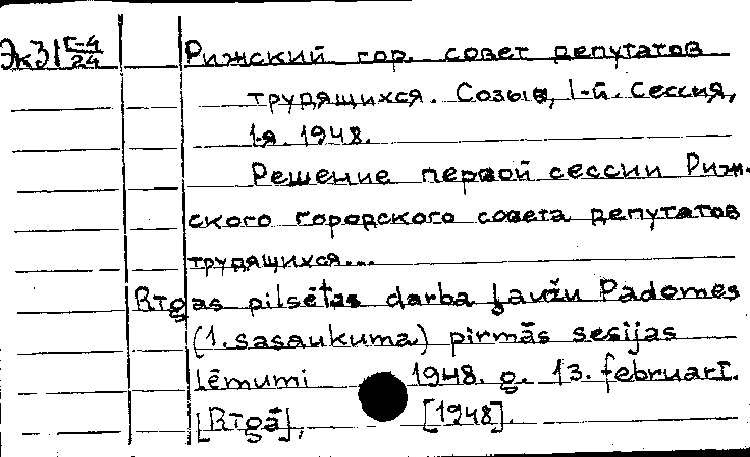 Эк31 Г-4/24 Рижский гор. совет депутатов
трудящихся. Созыв, 1-й. Сессия,
1-я. 1948.
Решение первой сессии Риж-
ского городского совета депутатов
трудящихся...
Rīgas pilsētas darba ļaužu Padomes
(1. sasaukuma) pirmās sesijas
lēmumi 1948. g. 13. februarī.
[Rīgā], [1948].